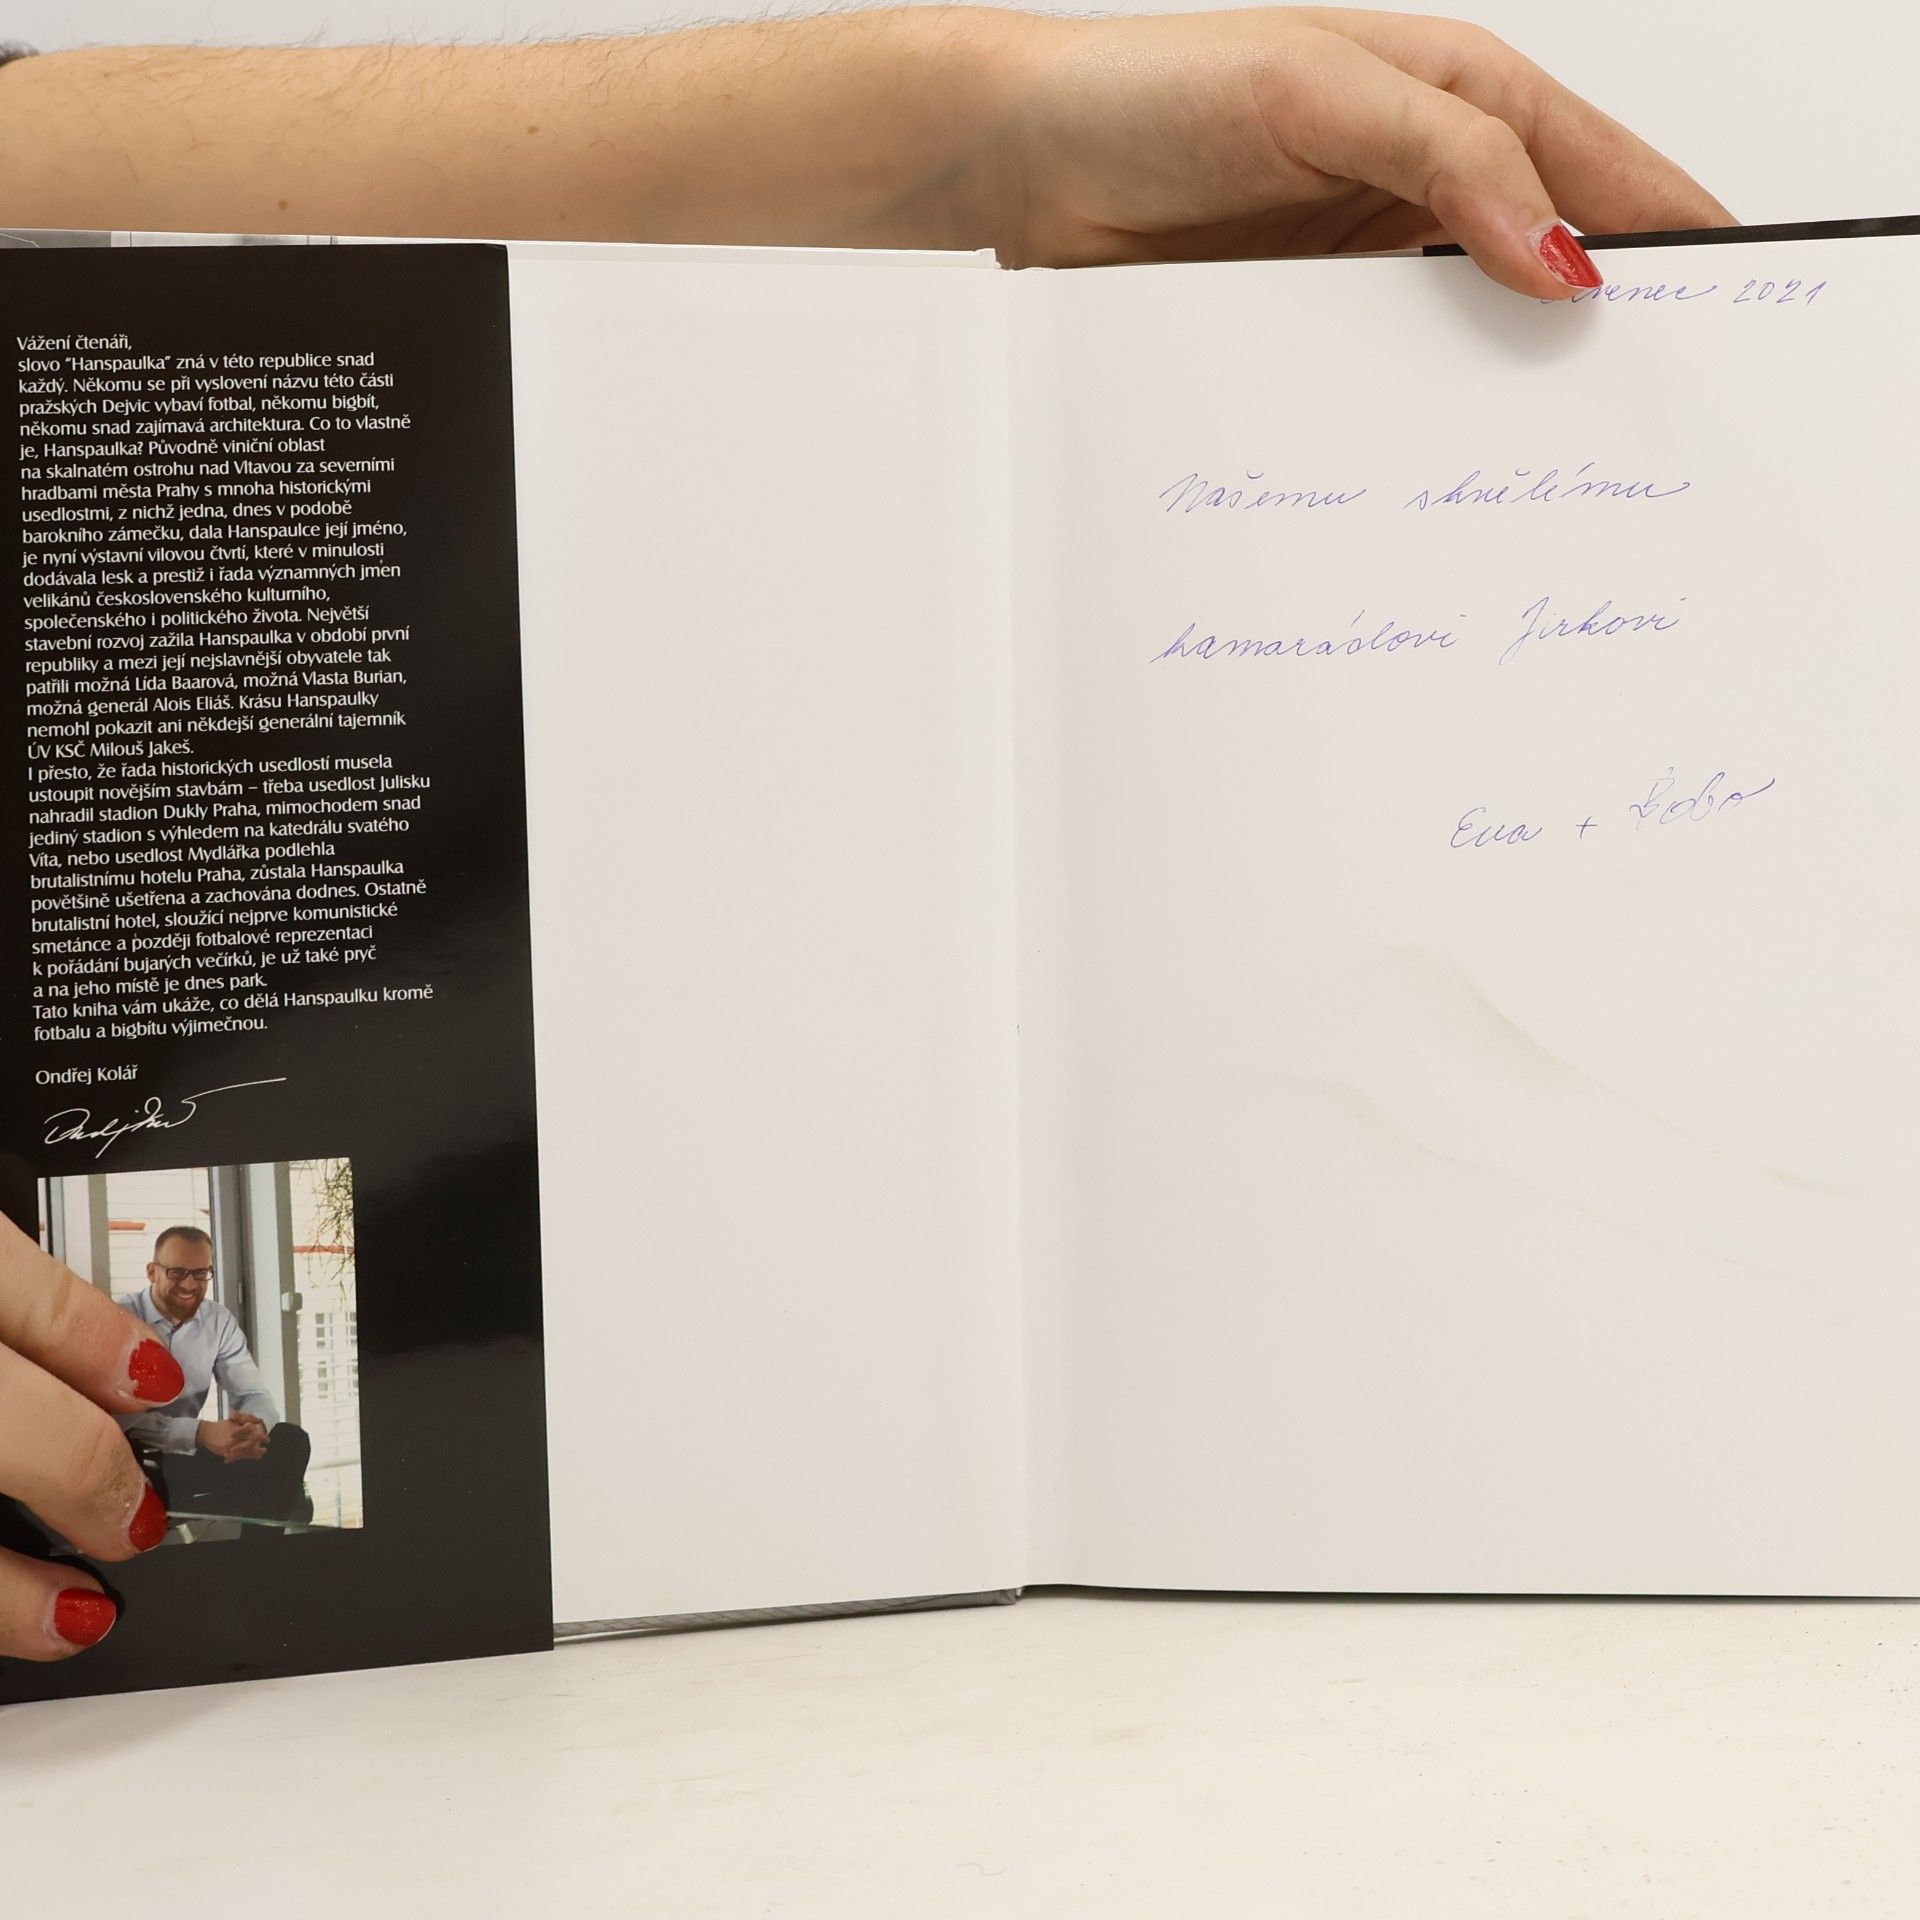 Vážení čtenáři,
slovo “Hanspaulka” zná v této republice snad
každý. Někomu se při vyslovení názvu této části
pražských Dejvic vybaví fotbal, někomu bigbít,
někomu snad zajímavá architektura. Co to vlastně
je, Hanspaulka? Původně viniční oblast
na skalnatém ostrohu nad Vltavou za severními
hradbami města Prahy s mnoha historickými
usedlostmi, z nichž jedna, dnes v podobě
barokního zámečku, dala Hanspaulce její jméno,
je nyní výstavní vilovou čtvrtí, které v minulosti
dodávala lesk a prestiž i řada významných jmen
velikánů československého kulturního,
společenského i politického života. Největší
stavební rozvoj zažila Hanspaulka v období první
republiky a mezi její nejslavnější obyvatele tak
patřili možná Lída Baarová, možná Vlasta Burian,
možná generál Alois Eliáš. Krásu Hanspaulky
nemohl pokazit ani někdejší generální tajemník
ÚV KSČ Milouš Jakeš.
I přesto, že řada historických usedlostí musela
ustoupit novějším stavbám – třeba usedlost Julisku
nahradil stadion Dukly Praha, mimochodem snad
jediný stadion s výhledem na katedrálu svatého
Víta, nebo usedlost Mydlářka podlehla
brutalistnímu hotelu Praha, zůstala Hanspaulka
povětšině ušetřena a zachována dodnes. Ostatně
brutalistní hotel, sloužící nejprve komunistické
smetánce a později fotbalové reprezentaci
k pořádání bujarých večírků, je už také pryč
a na jeho místě je dnes park.
Tato kniha vám ukáže, co dělá Hanspaulku kromě
fotbalu a bigbítu výjimečnou.
Ondřej Kolář
2021
Našemu skvělému
kamarádovi Jirkovi
Eva + Bobo